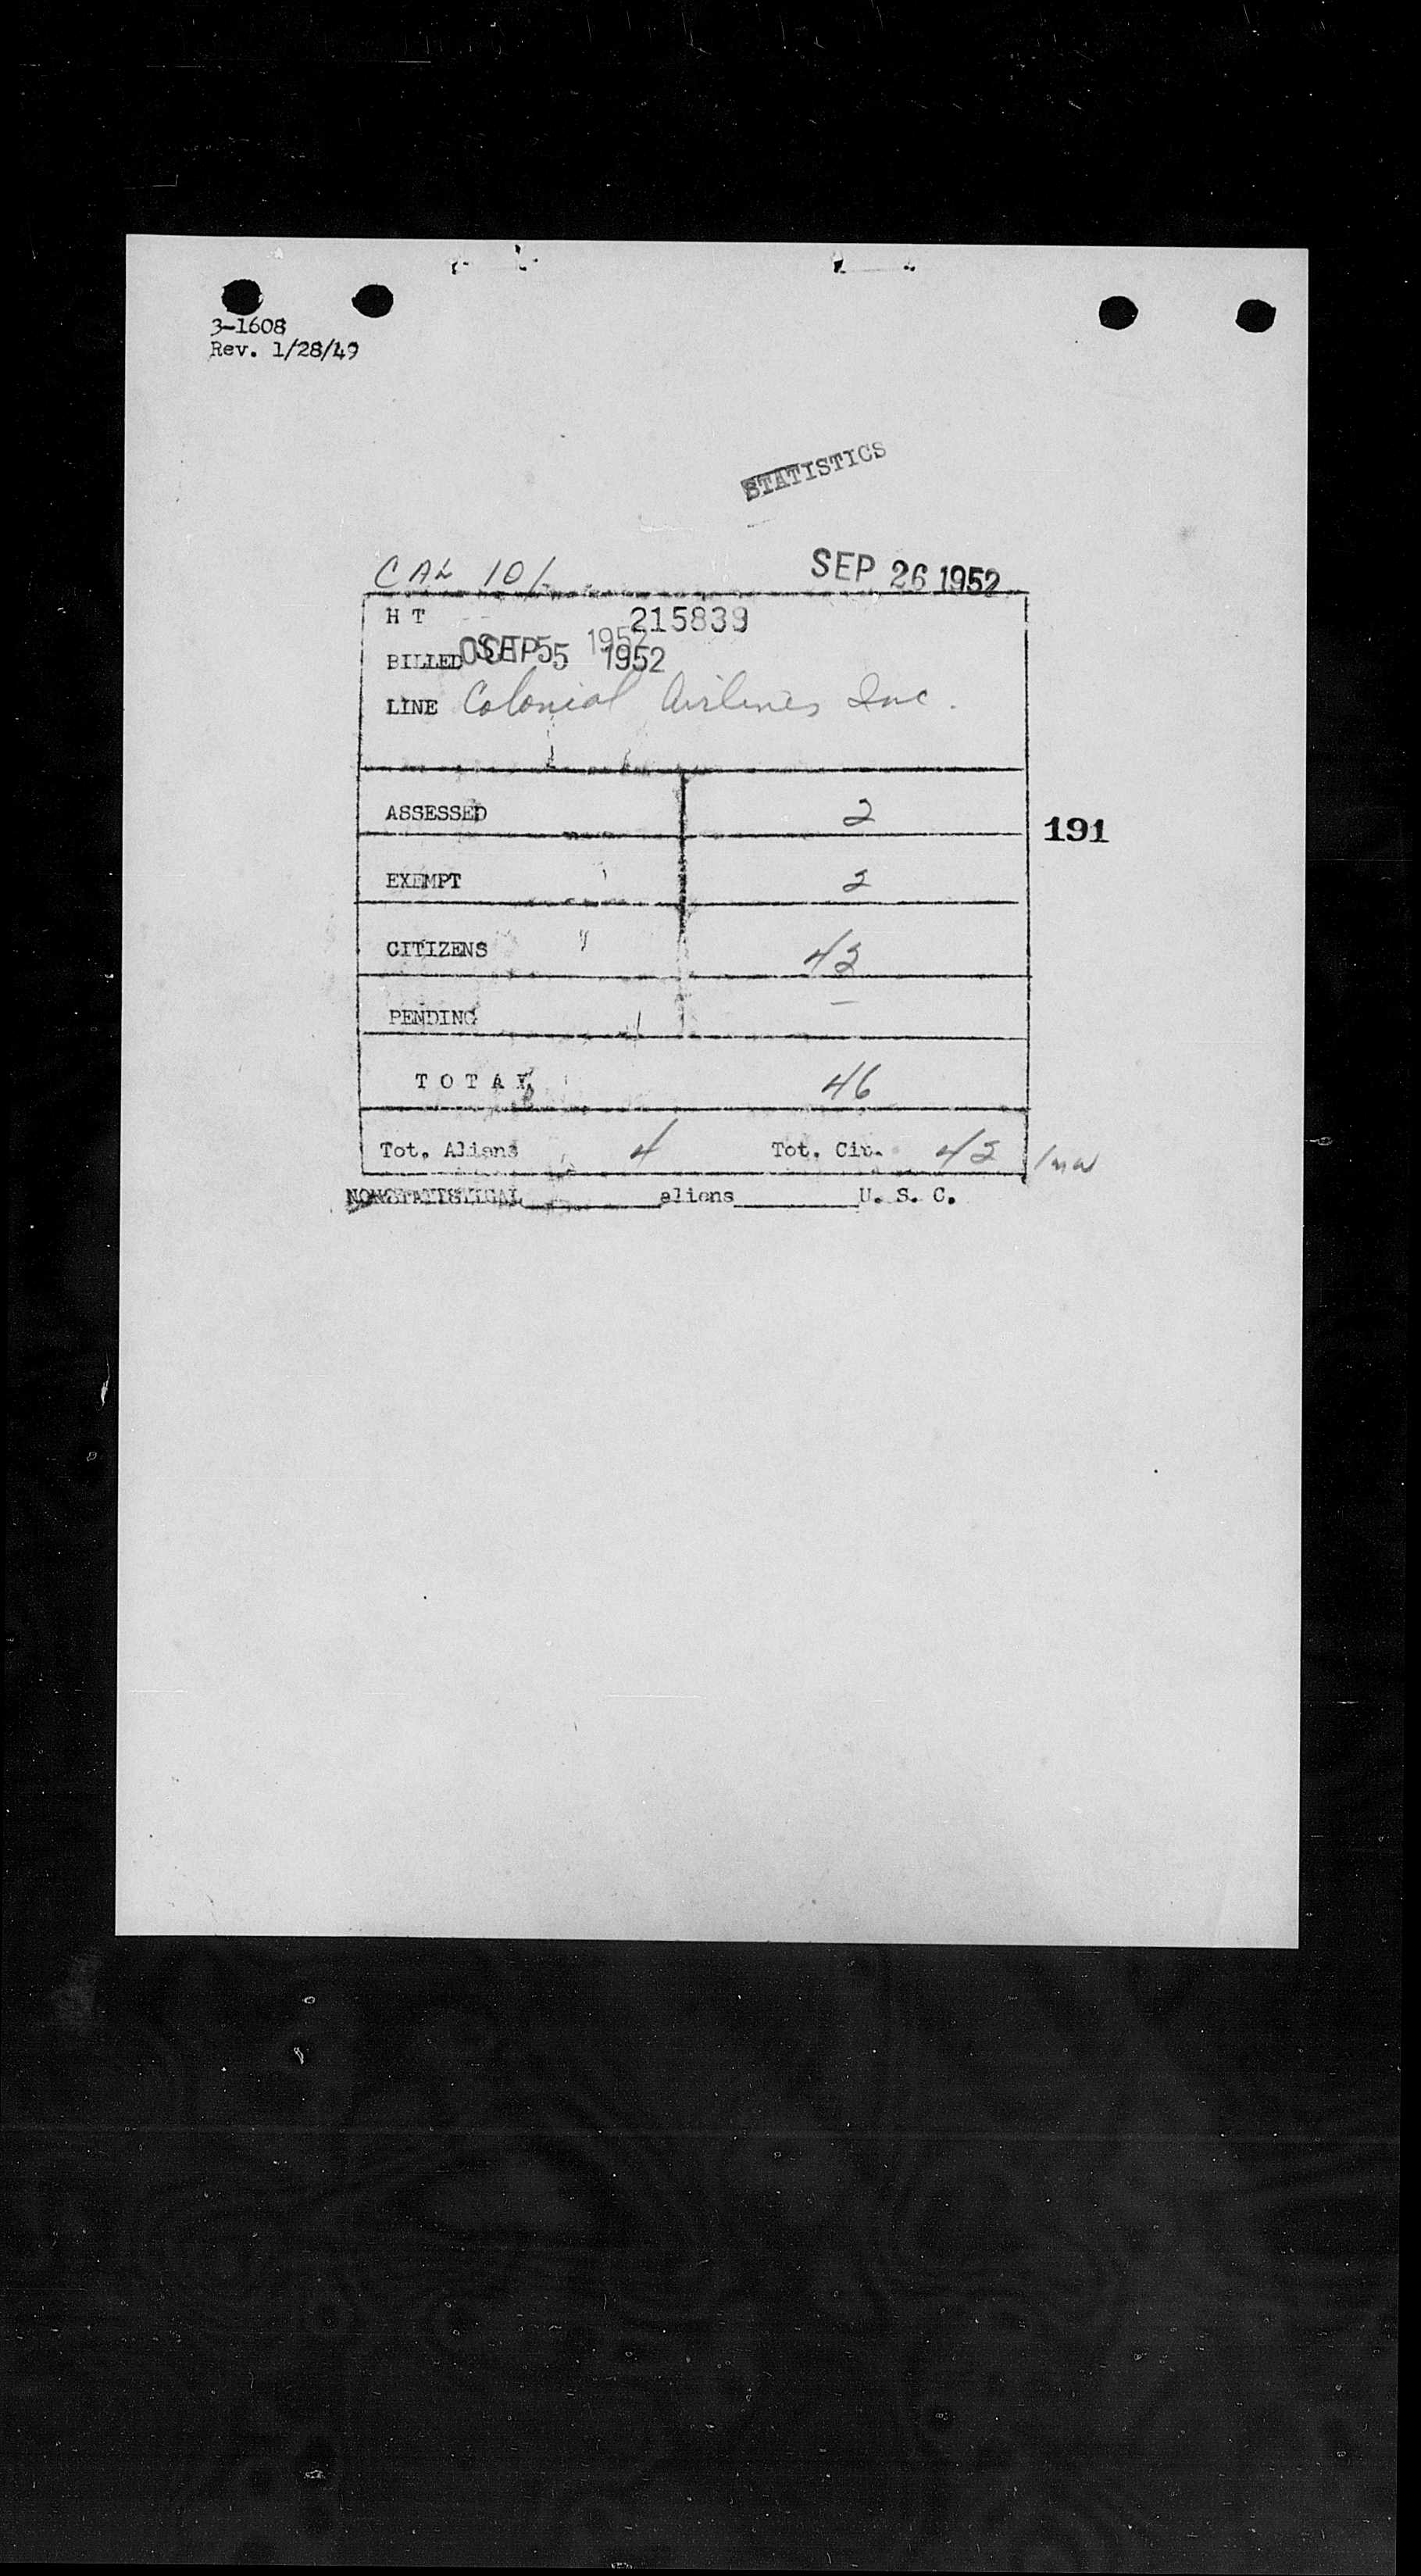 3-1608
Rev. 1/28/49
STATISTICS
CAL 101
SEP 26 1952
H T 215839
BILLED OCT 5 1952 SEP 5 1952
LINE Colonial Airlines Inc.
ASSESSED 2
EXEMPT 2
191
CITIZENS 42
PENDING –
TOTAL 46
Tot. Aliens 4 Tot. Cit. 42
NONSTATISTICAL________aliens________U. S. C.